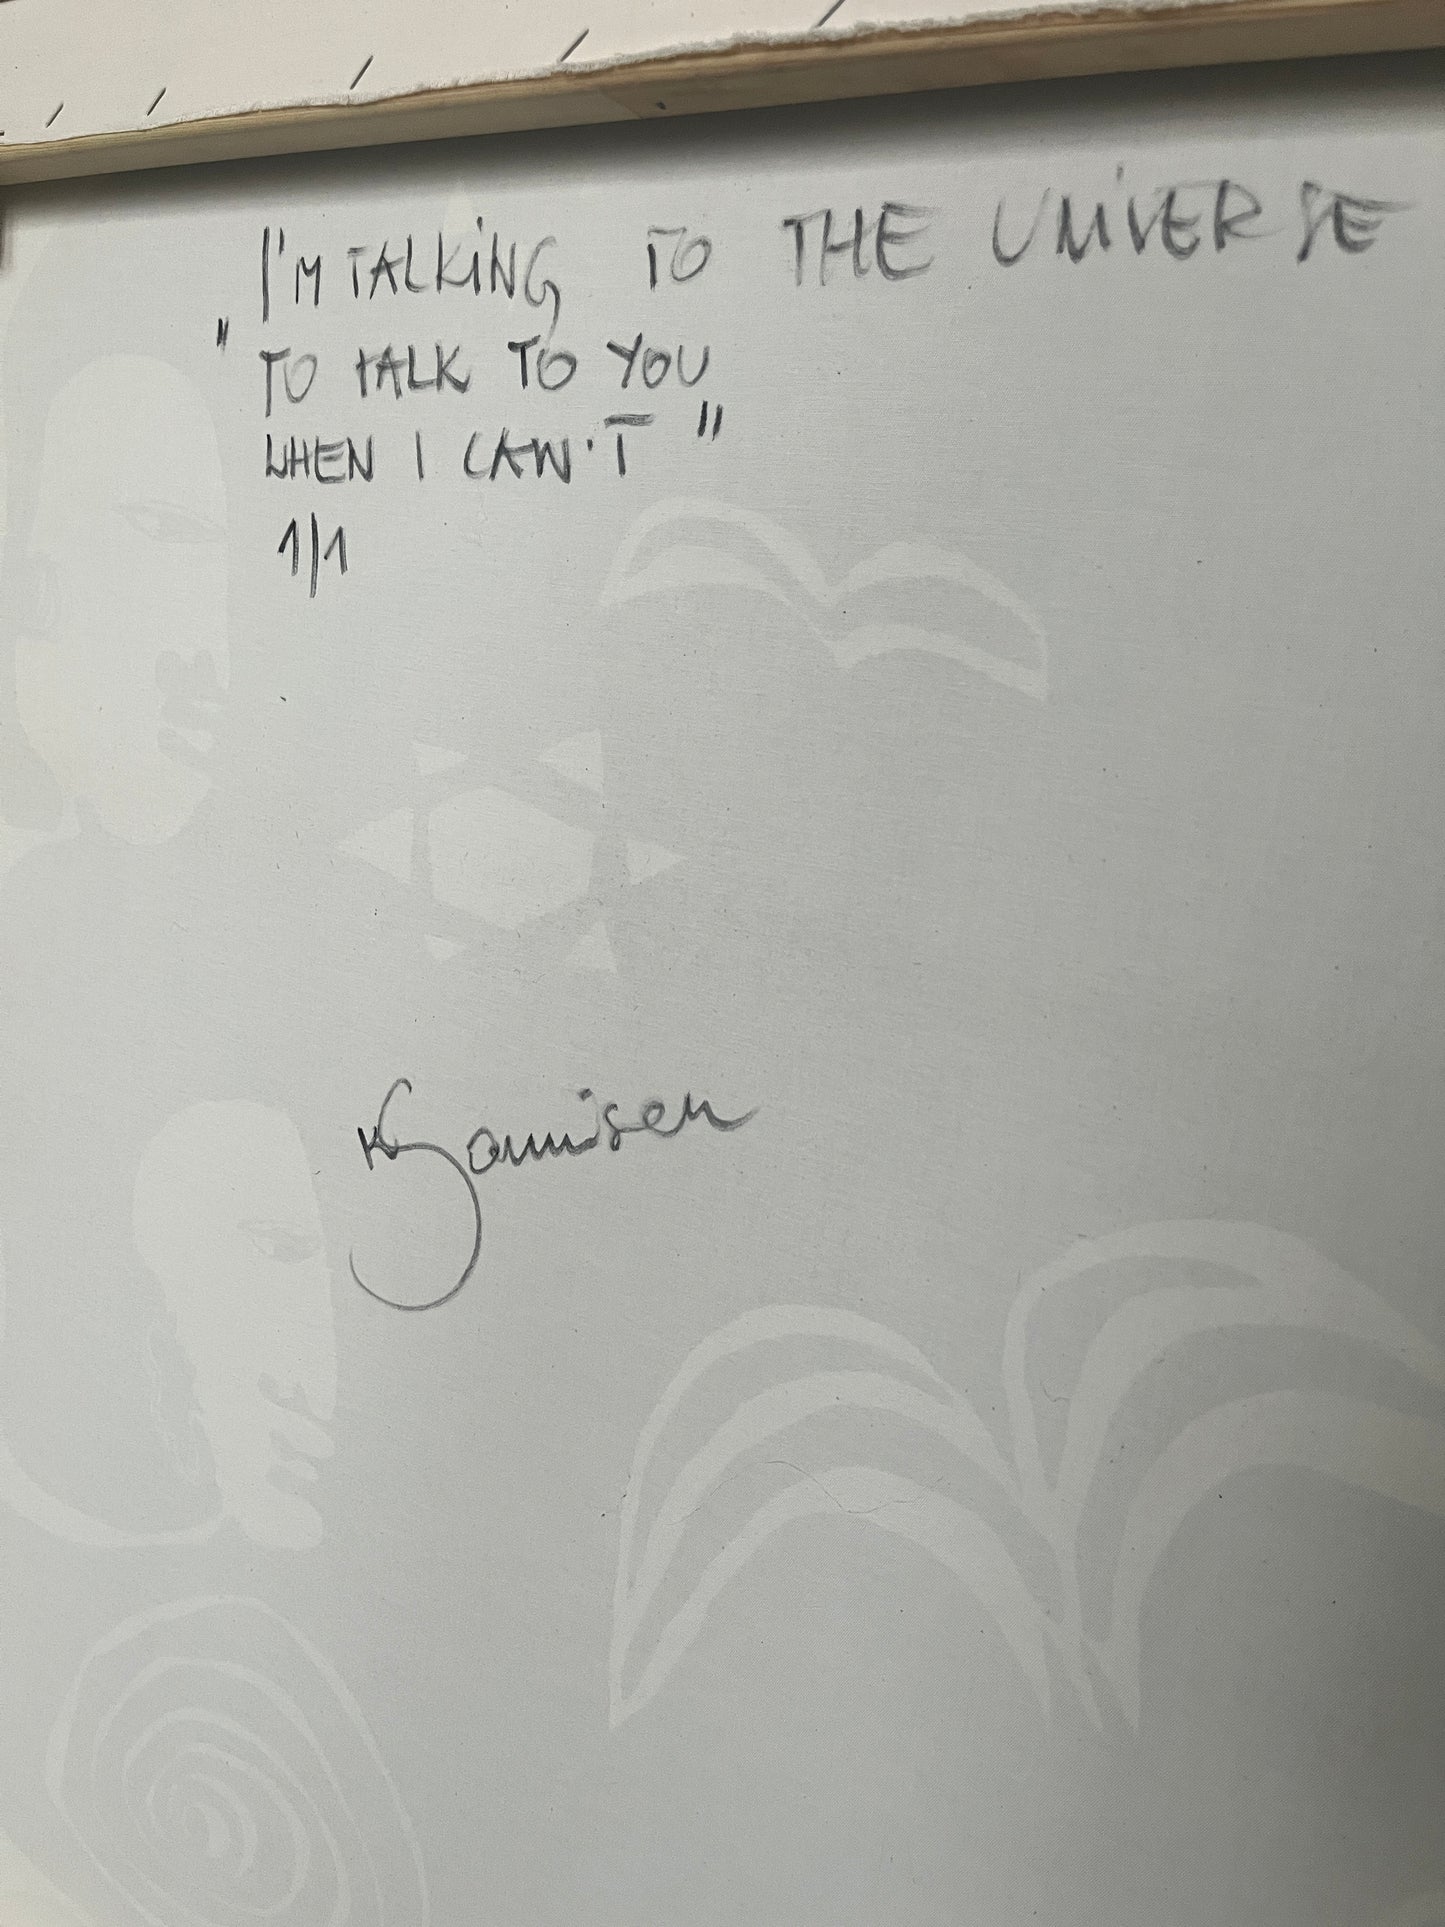 I'M TALKING TO THE UNIVERSE
"TO TALK TO YOU
WHEN I CAN'T"
1/1